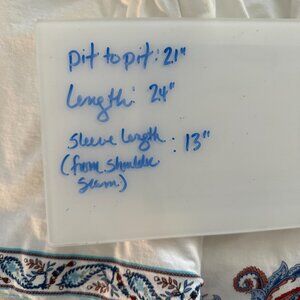 Pit to pit: 21"
Length: 24"
Sleeve Length : 13"
(from shoulder
seam)